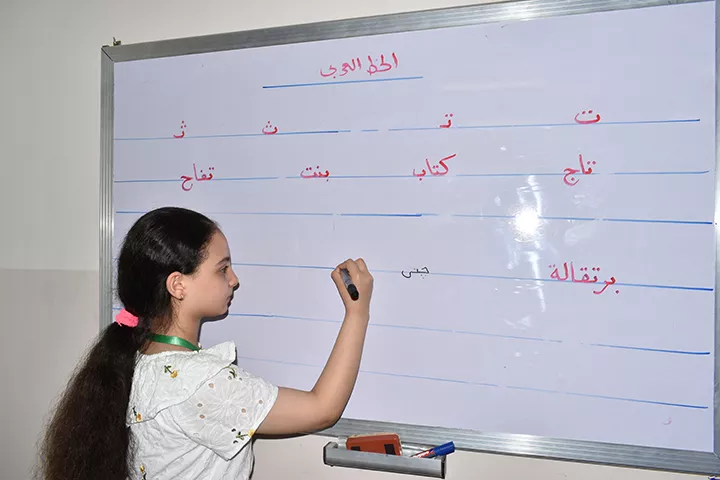 الخط العربي
ت تـ ث ثـ
تاج كتاب بنت تفاح
برتقالة